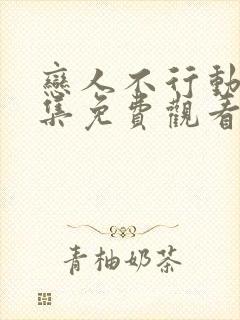 戀人不行動
集免費觀看
青柚奶茶